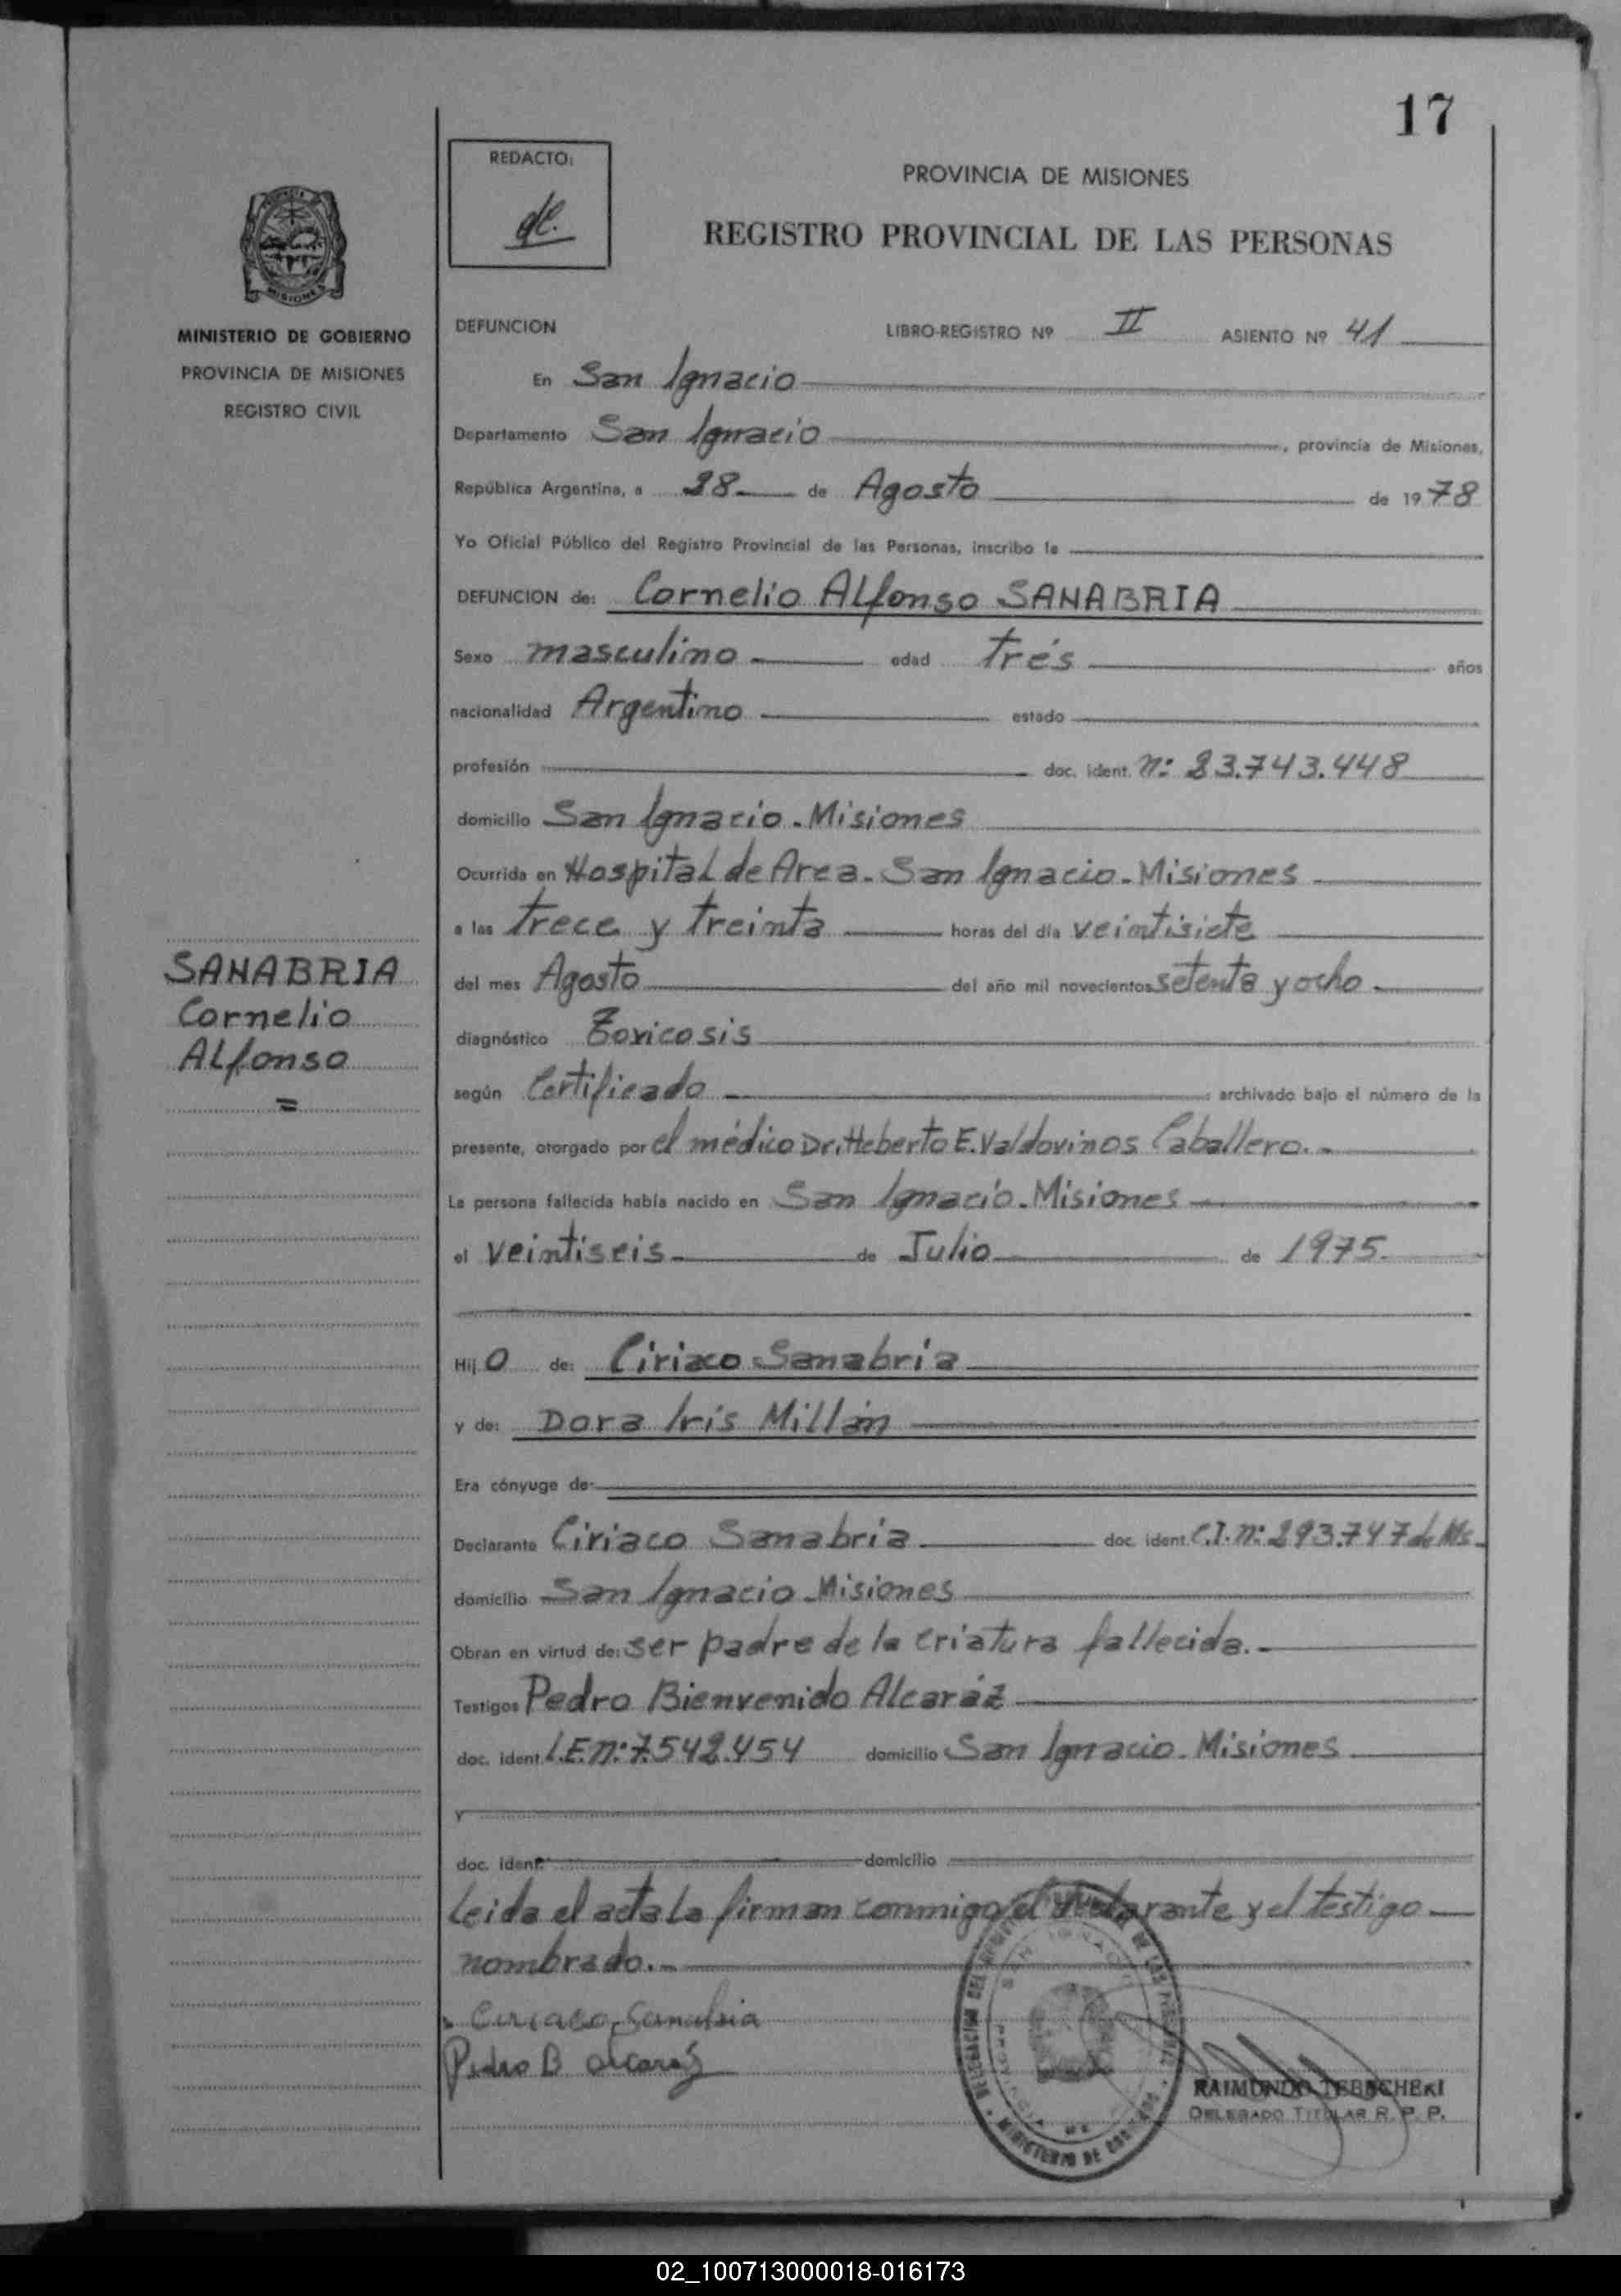 17
REDACTO:
PROVINCIA DE MISIONES
REGISTRO PROVINCIAL DE LAS PERSONAS
MISIONES
MINISTERIO DE GOBIERNO
PROVINCIA DE MISIONES
REGISTRO CIVIL
DEFUNCION LIBRO-REGISTRO Nº II ASIENTO Nº 41
En San Ignacio
Departamento San Ignacio , provincia de Misiones,
República Argentina, a 28 de Agosto de 1978
Yo Oficial Público del Registro Provincial de las Personas, inscribo la
DEFUNCION de: Cornelio Alfonso SANABRIA
Sexo masculino edad trés años
nacionalidad Argentino estado
profesión doc. ident. Nº 23.743.448
domicilio San Ignacio - Misiones
Ocurrida en Hospital de Area - San Ignacio - Misiones
a las trece y treinta horas del día veintisiete
del mes Agosto del año mil novecientos setenta y ocho
SANABRIA
Cornelio
Alfonso
=
diagnóstico Toxicosis
según Certificado archivado bajo el número de la
presente, otorgado por el médico Dr. Heberto E. Valdovinos Caballero.-
La persona fallecida había nacido en San Ignacio - Misiones
el veintiseis de Julio de 1975
Hijo de: Ciriaco Sanabria
y de: Dora Iris Millán
Era cónyuge de:
Declarante Ciriaco Sanabria doc. ident. C.I. nº 293.747 de Ms.
domicilio San Ignacio - Misiones
Obran en virtud de: ser padre de la criatura fallecida.-
Testigos Pedro Bienvenido Alcaráz
doc. ident. L.E. nº 7.542.454 domicilio San Ignacio - Misiones
y
doc. ident. domicilio
Leida el acta la firman conmigo el declarante y el testigo
nombrado.-
Ciriaco Sanabria
Pedro B Alcaraz
RAIMUNDO
DELEGADO TITULAR R. P. P.
02_100713000018-016173